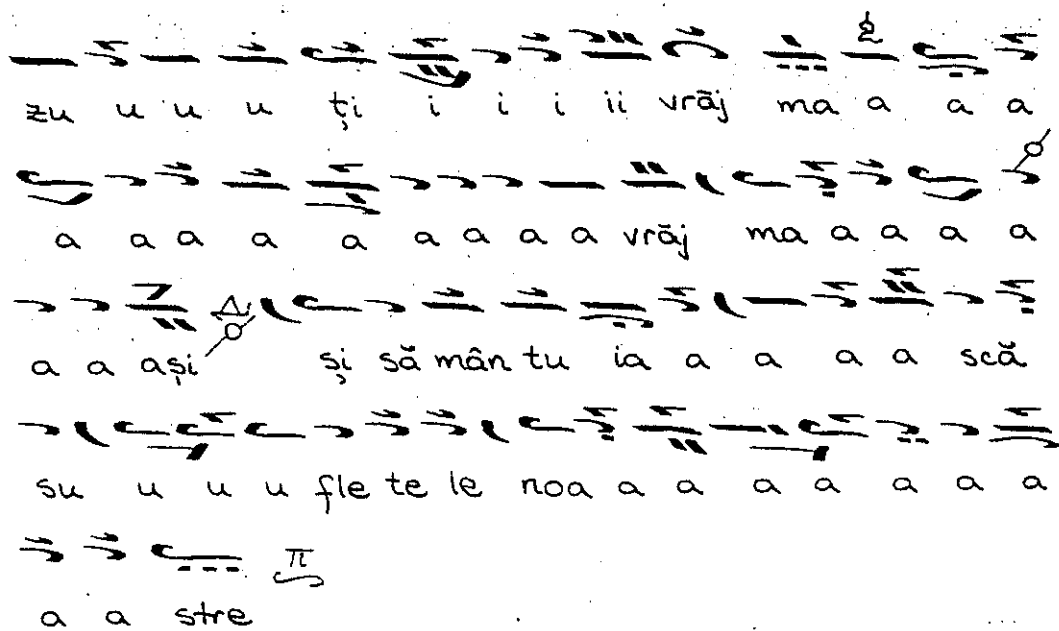 zu u u u ți i i i ii vrăj ma a a a
a a a a a a a a a vrăj ma a a a a
a a ași Δ și să mân tu ia a a a a scă
su u u u fle te le noa a a a a a a a
π
a a stre